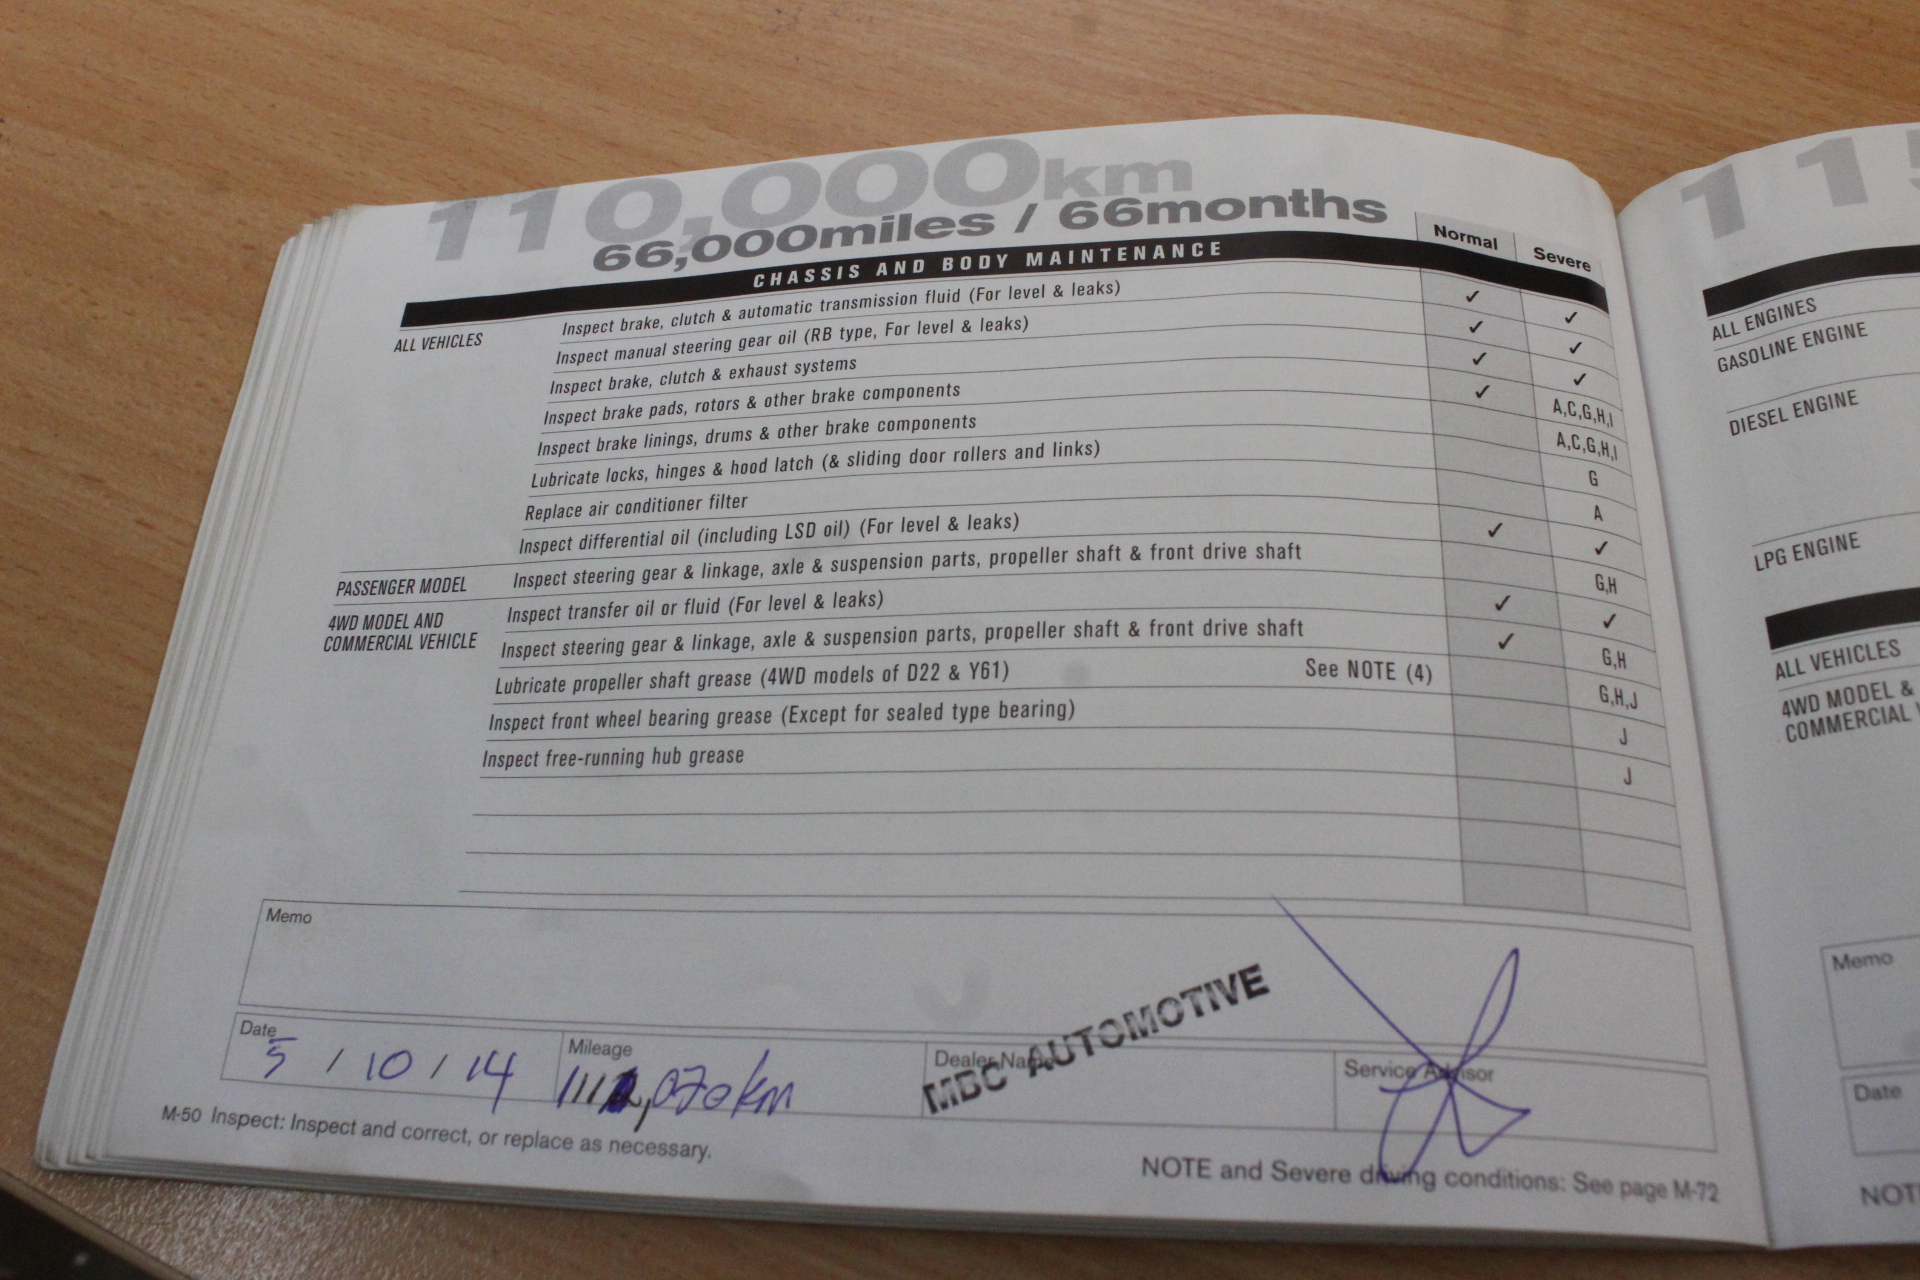 110,000km
66,000miles / 66months
Normal Severe
CHASSIS AND BODY MAINTENANCE
ALL VEHICLES Inspect brake, clutch & automatic transmission fluid (For level & leaks) ✓ ✓
Inspect manual steering gear oil (RB type, For level & leaks) ✓ ✓
Inspect brake, clutch & exhaust systems ✓ ✓
Inspect brake pads, rotors & other brake components ✓ A,C,G,H,I
Inspect brake linings, drums & other brake components A,C,G,H,I
Lubricate locks, hinges & hood latch (& sliding door rollers and links) G
Replace air conditioner filter A
Inspect differential oil (including LSD oil) (For level & leaks) ✓ ✓
PASSENGER MODEL Inspect steering gear & linkage, axle & suspension parts, propeller shaft & front drive shaft G,H
4WD MODEL AND Inspect transfer oil or fluid (For level & leaks) ✓ ✓
COMMERCIAL VEHICLE Inspect steering gear & linkage, axle & suspension parts, propeller shaft & front drive shaft ✓ G,H
Lubricate propeller shaft grease (4WD models of D22 & Y61) See NOTE (4) G,H,J
Inspect front wheel bearing grease (Except for sealed type bearing) J
Inspect free-running hub grease J
Memo
Date 5 / 10 / 14
Mileage
Dealer Name MBC AUTOMOTIVE
Service Advisor
M-50 Inspect: Inspect and correct, or replace as necessary.
NOTE and Severe driving conditions: See page M-72
ALL ENGINES
GASOLINE ENGINE
DIESEL ENGINE
LPG ENGINE
ALL VEHICLES
4WD MODEL &
COMMERCIAL
Memo
Date